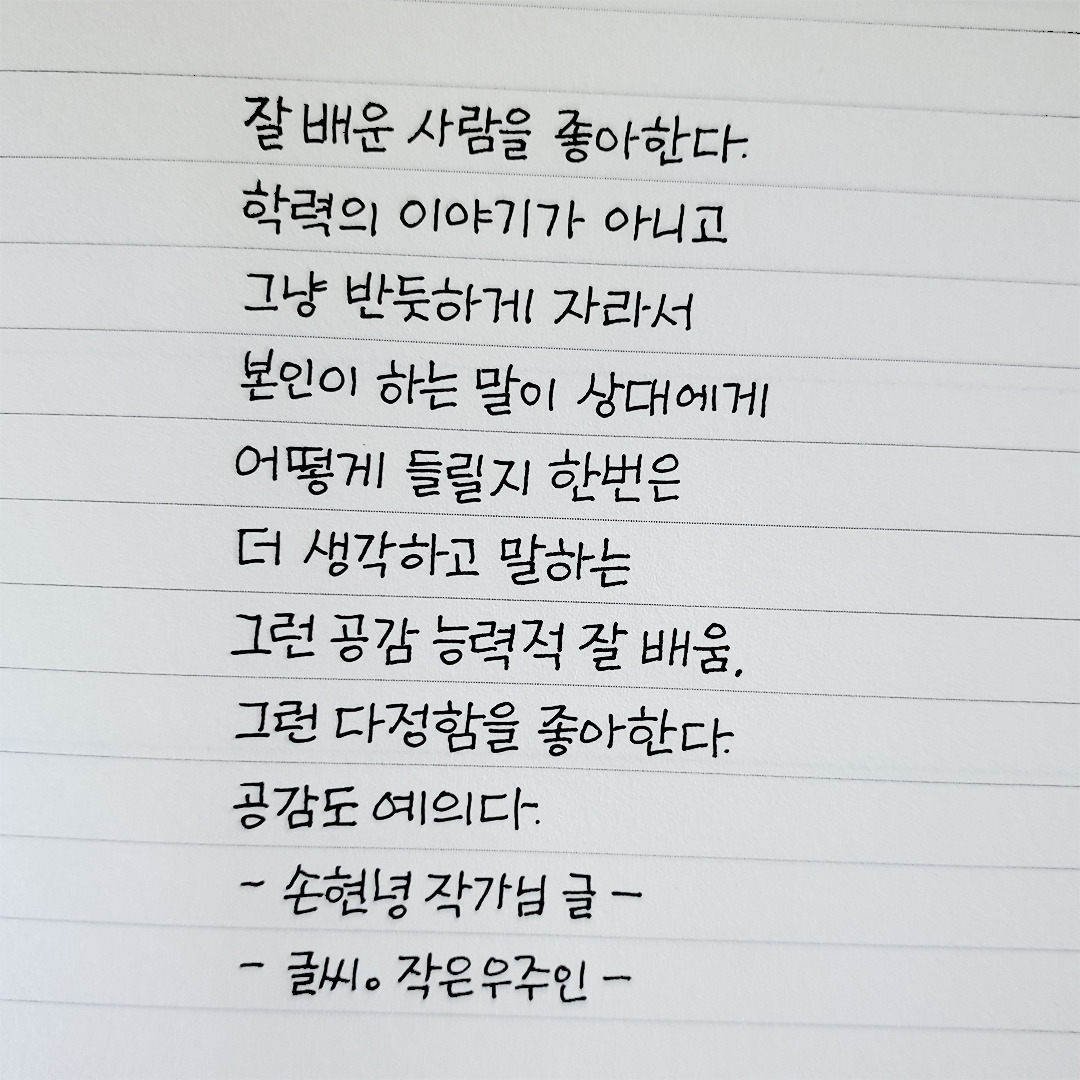 잘 배운 사람을 좋아한다.
학력의 이야기가 아니고
그냥 반듯하게 자라서
본인이 하는 말이 상대에게
어떻게 들릴지 한번은
더 생각하고 말하는
그런 공감 능력적 잘 배움.
그런 다정함을 좋아한다.
공감도 예의다.
- 손현녕 작가님 글 -
- 글씨。작은우주인 -